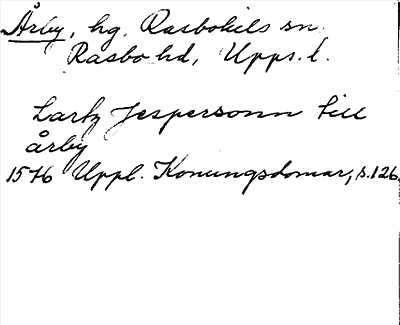 Årby, hg, Rasbokils sn.
Rasbo hd, Upps. l.
Lartz Jespersonn till
årby
1576 Uppl. Konungsdomar, s. 126.